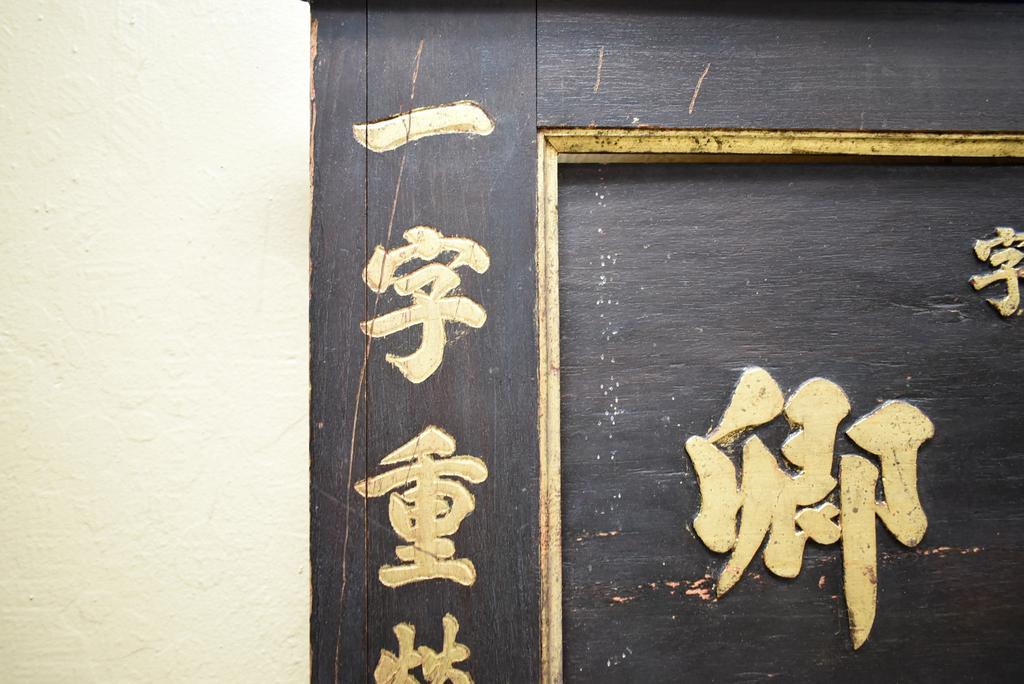 一字重
卿
字